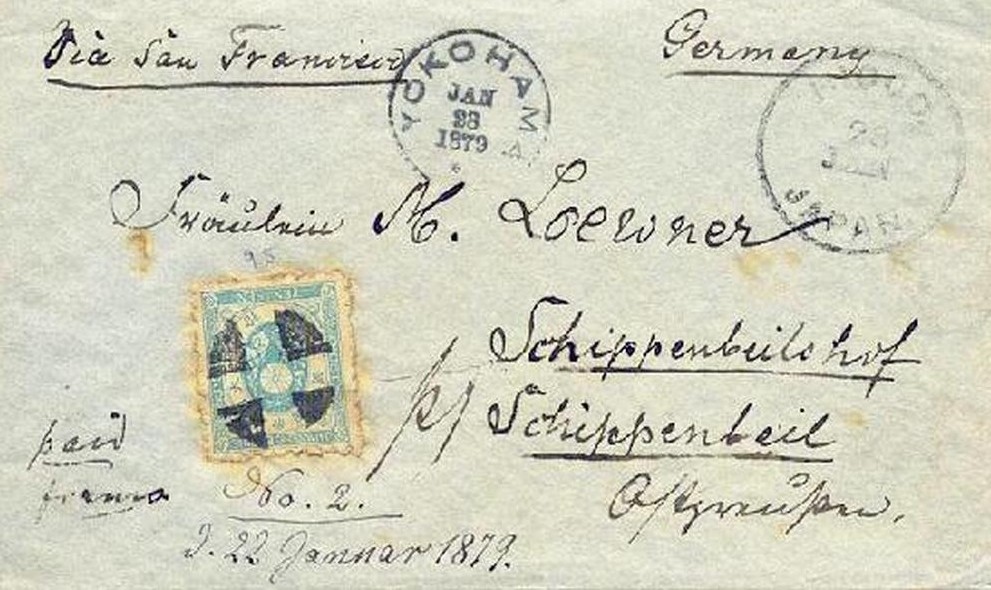 Via San Francisco
Germany
YOKOHAMA
JAN
28
1879
JAPAN
Fräulein M. Loewner
95
Schippenbeilshof
p/ Schippenbeil
Ostpreußen.
paid
franco
No. 2.
d. 22 Januar 1879.